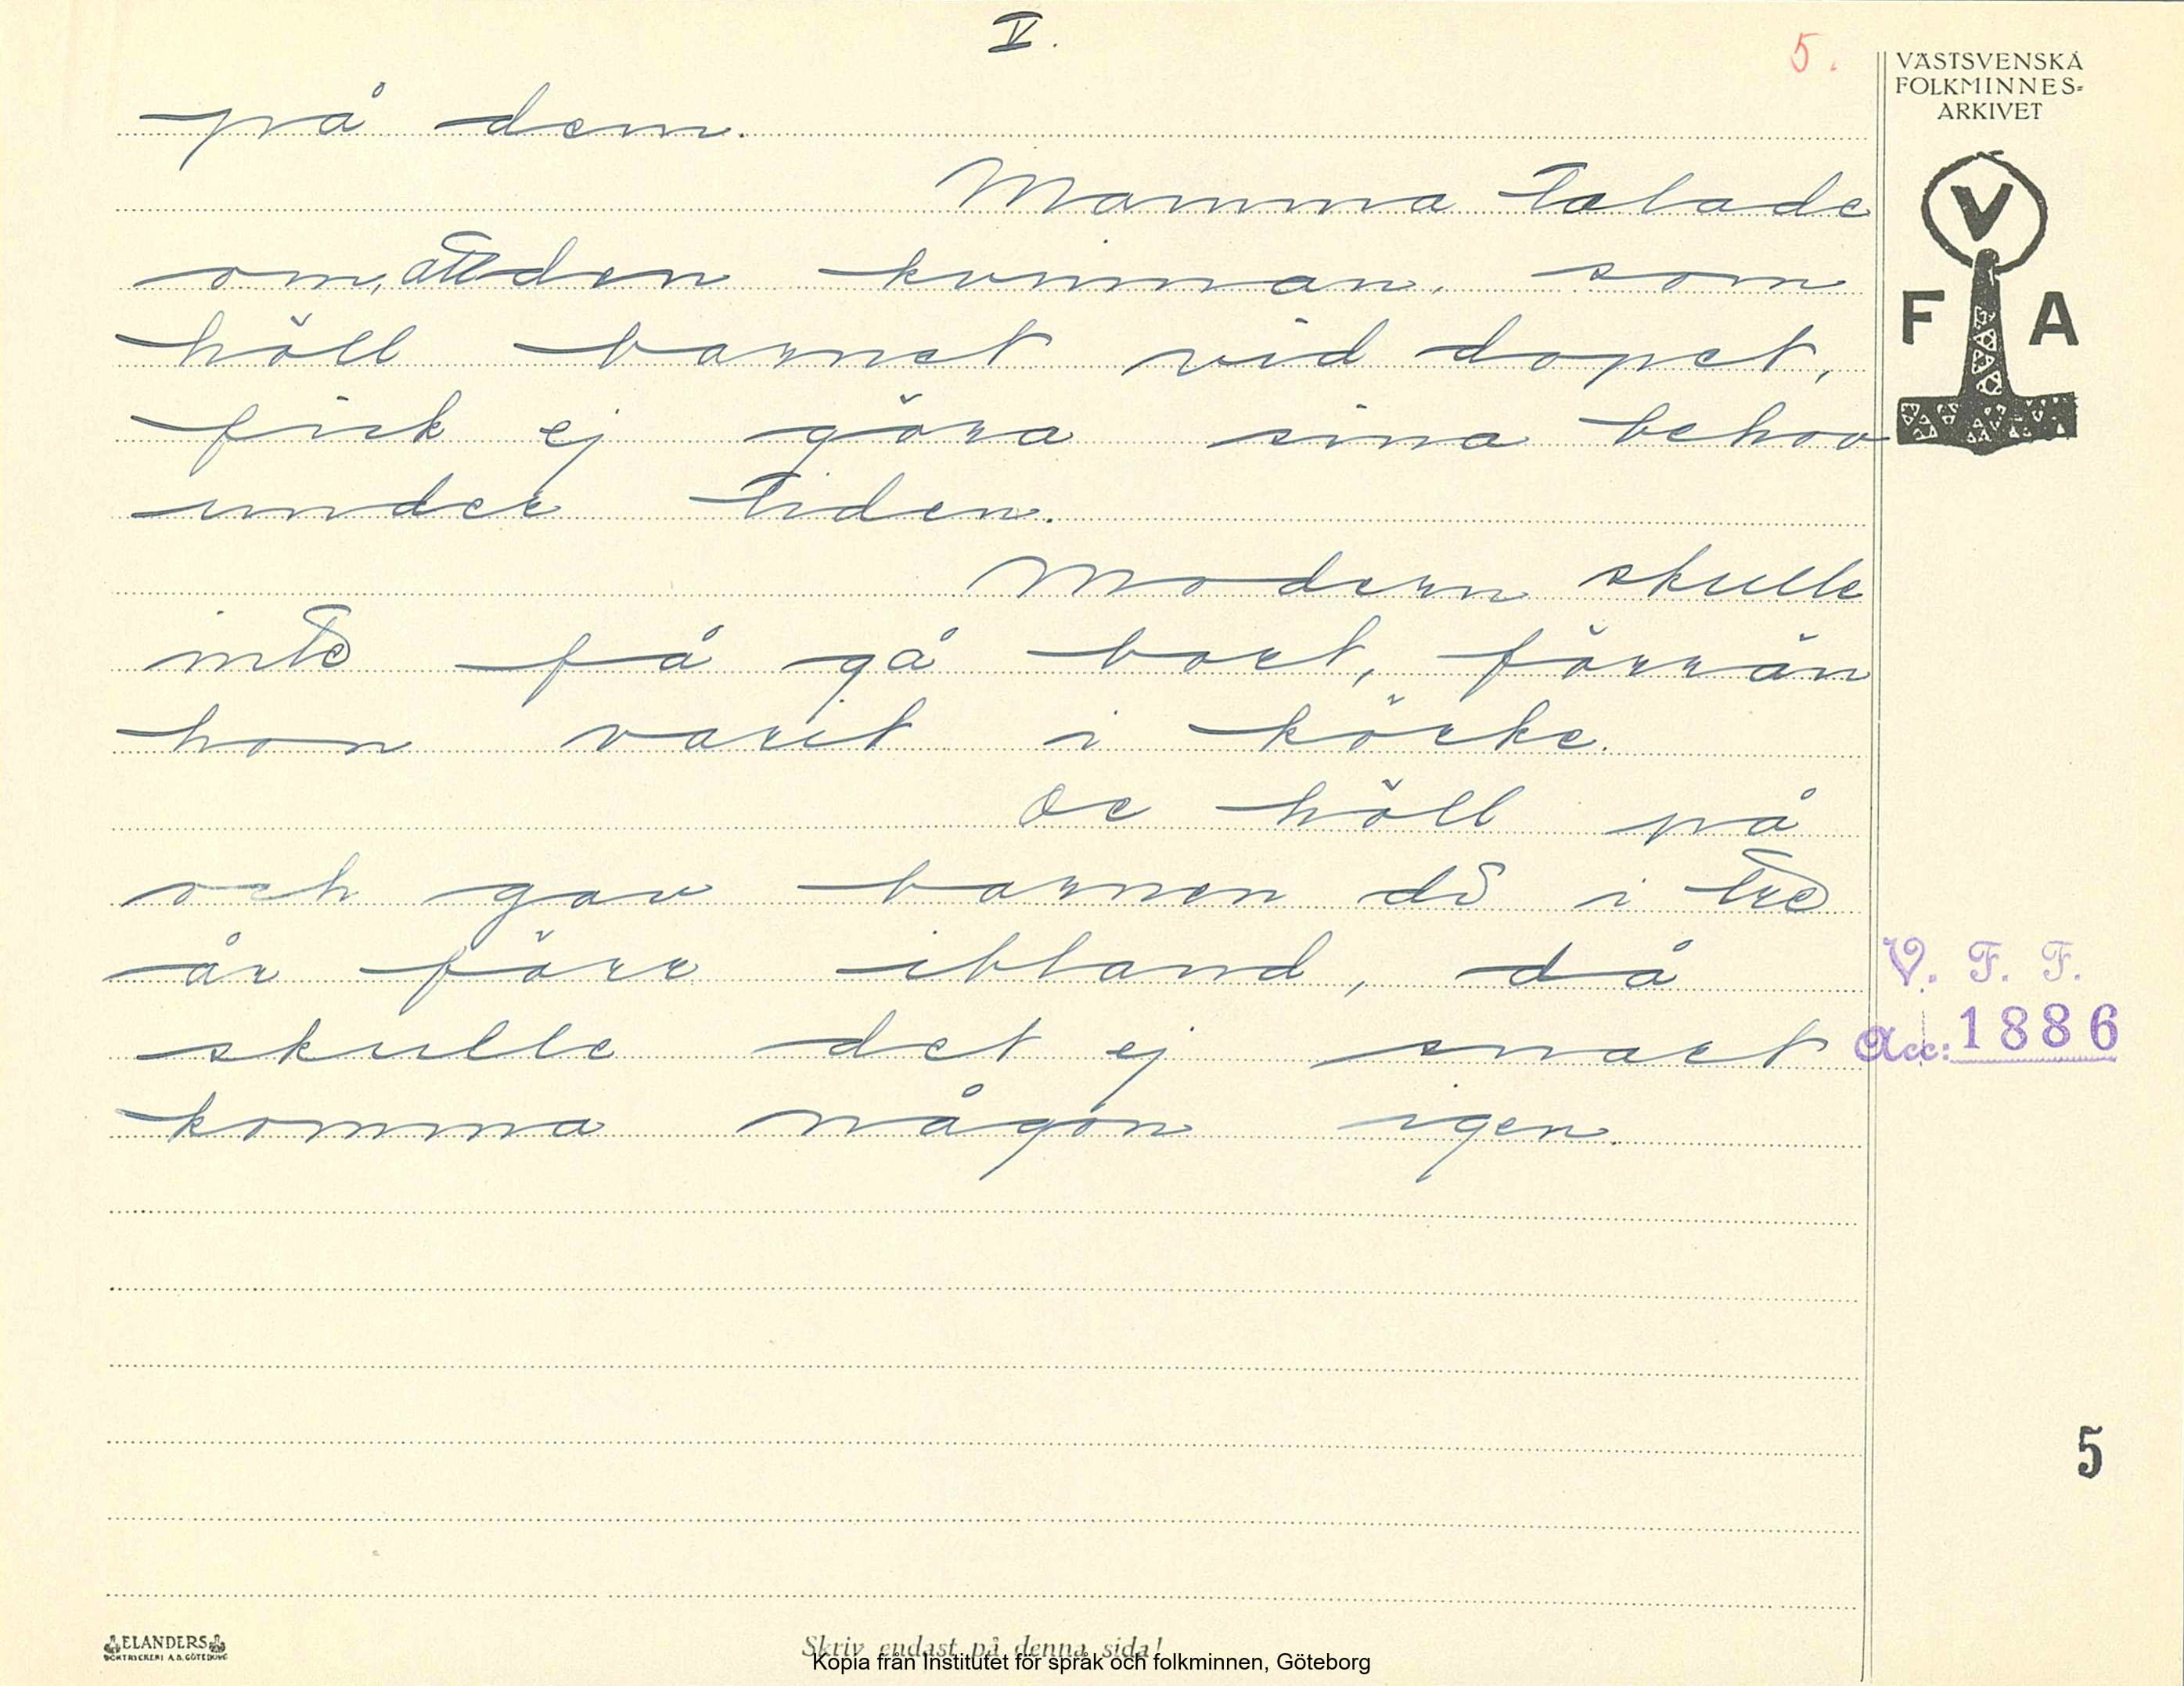 V.
5.
VÄSTSVENSKA
FOLKMINNES-
ARKIVET
V
F A
på dem.
Mamma talade
om, att den kvinnan, som
höll barnet vid dopet,
fick ej göra sina behov
under tiden.
Modern skulle
inte få gå bort, förrän
hon varit i körke.
De höll på
och gav barnen di i tre
år förr ibland, då
skulle det ej snart
komma någon igen.
V. F. F.
Acc: 1886
5
ELANDERS
BOKTRYCKERI A.B. GÖTEBORG
Skriv endast på denna sida!
Kopia från Institutet för språk och folkminnen, Göteborg